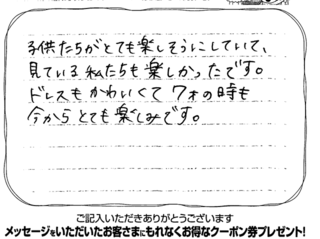 子供たちがとても楽しそうにしていて、
見ている私たちも楽しかったです。
ドレスもかわいくて7才の時も
今からとても楽しみです。
ご記入いただきありがとうございます
メッセージをいただいたお客さまにもれなくお得なクーポン券プレゼント!